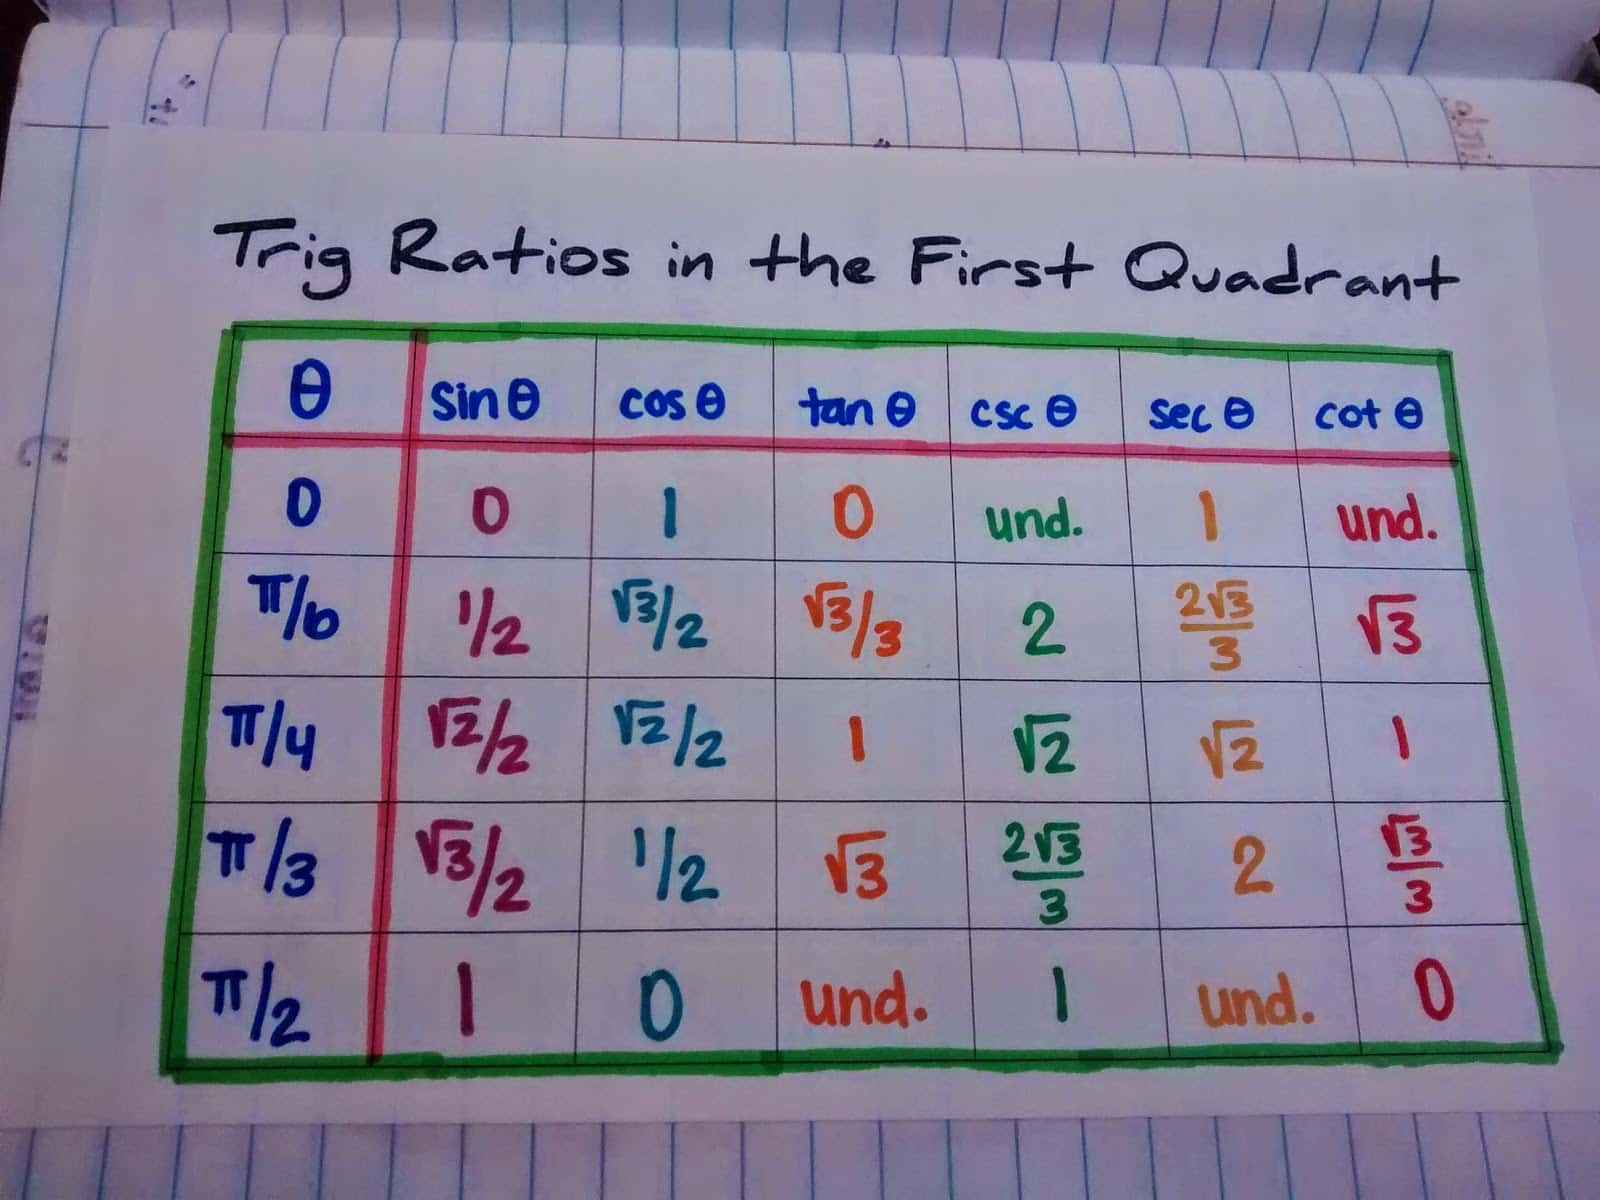 Trig Ratios in the First Quadrant
θ sin θ cos θ tan θ csc θ sec θ cot θ
0 0 1 0 und. 1 und.
π/6 1/2 √3/2 √3/3 2 2√3/3 √3
π/4 √2/2 √2/2 1 √2 √2 1
π/3 √3/2 1/2 √3 2√3/3 2 √3/3
π/2 1 0 und. 1 und. 0